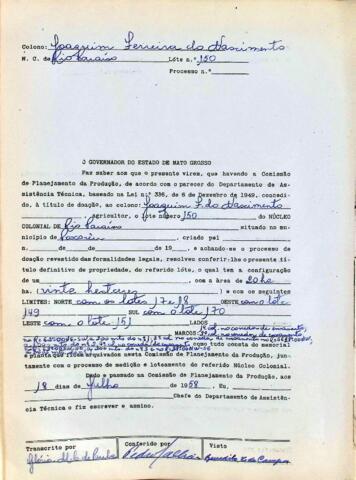 Colono: Joaquim Ferreira do Nascimento
N. C. de Rio Paraiso Lóte n.º 150
Processo n.º
O GOVERNADOR DO ESTADO DE MATO GROSSO
Faz saber aos que o presente virem, que havendo a Comissão
de Planejamento da Produção, de acordo com o parecer do Departamento de As-
sistência Técnica, baseado na Lei n.º 336, de 6 de Dezembro de 1949, concedi-
do, à título de doação, ao colono: Joaquim F. do Nascimento
, agricultor, o lote número 150 do NÚCLEO
COLONIAL DE Rio Paraiso situado no mu-
nicípio de , criado pel
n. de de de 19 , e achando-se o processo de
doação revestido das formalidades legais, resolveu conferir-lhe o presente tí-
tulo definitivo de propriedade, do referido lóte, o qual tem a configuração
de um , com a área de 20 ha
ha. (vinte hectares) e com os seguintes
LIMITES: NORTE com os lotes 17 e 18 OESTE com o lote
149 SUL com o lote 170
LESTE com o lote 151 LADOS
MARCOS:
como tudo consta do memorial
e planta que ficam arquivados nesta Comissão de Planejamento da Produção, jun-
tamente com o processo de medição e loteamento do referido Núcleo Colonial.
Dado e passado na Comissão de Planejamento da Produção, aos
18 dias de Julho de 1958 Eu,
Chefe do Departamento de Assistên-
cia Técnica o fiz escrever e assino.
Transcrito por Conferido por Visto